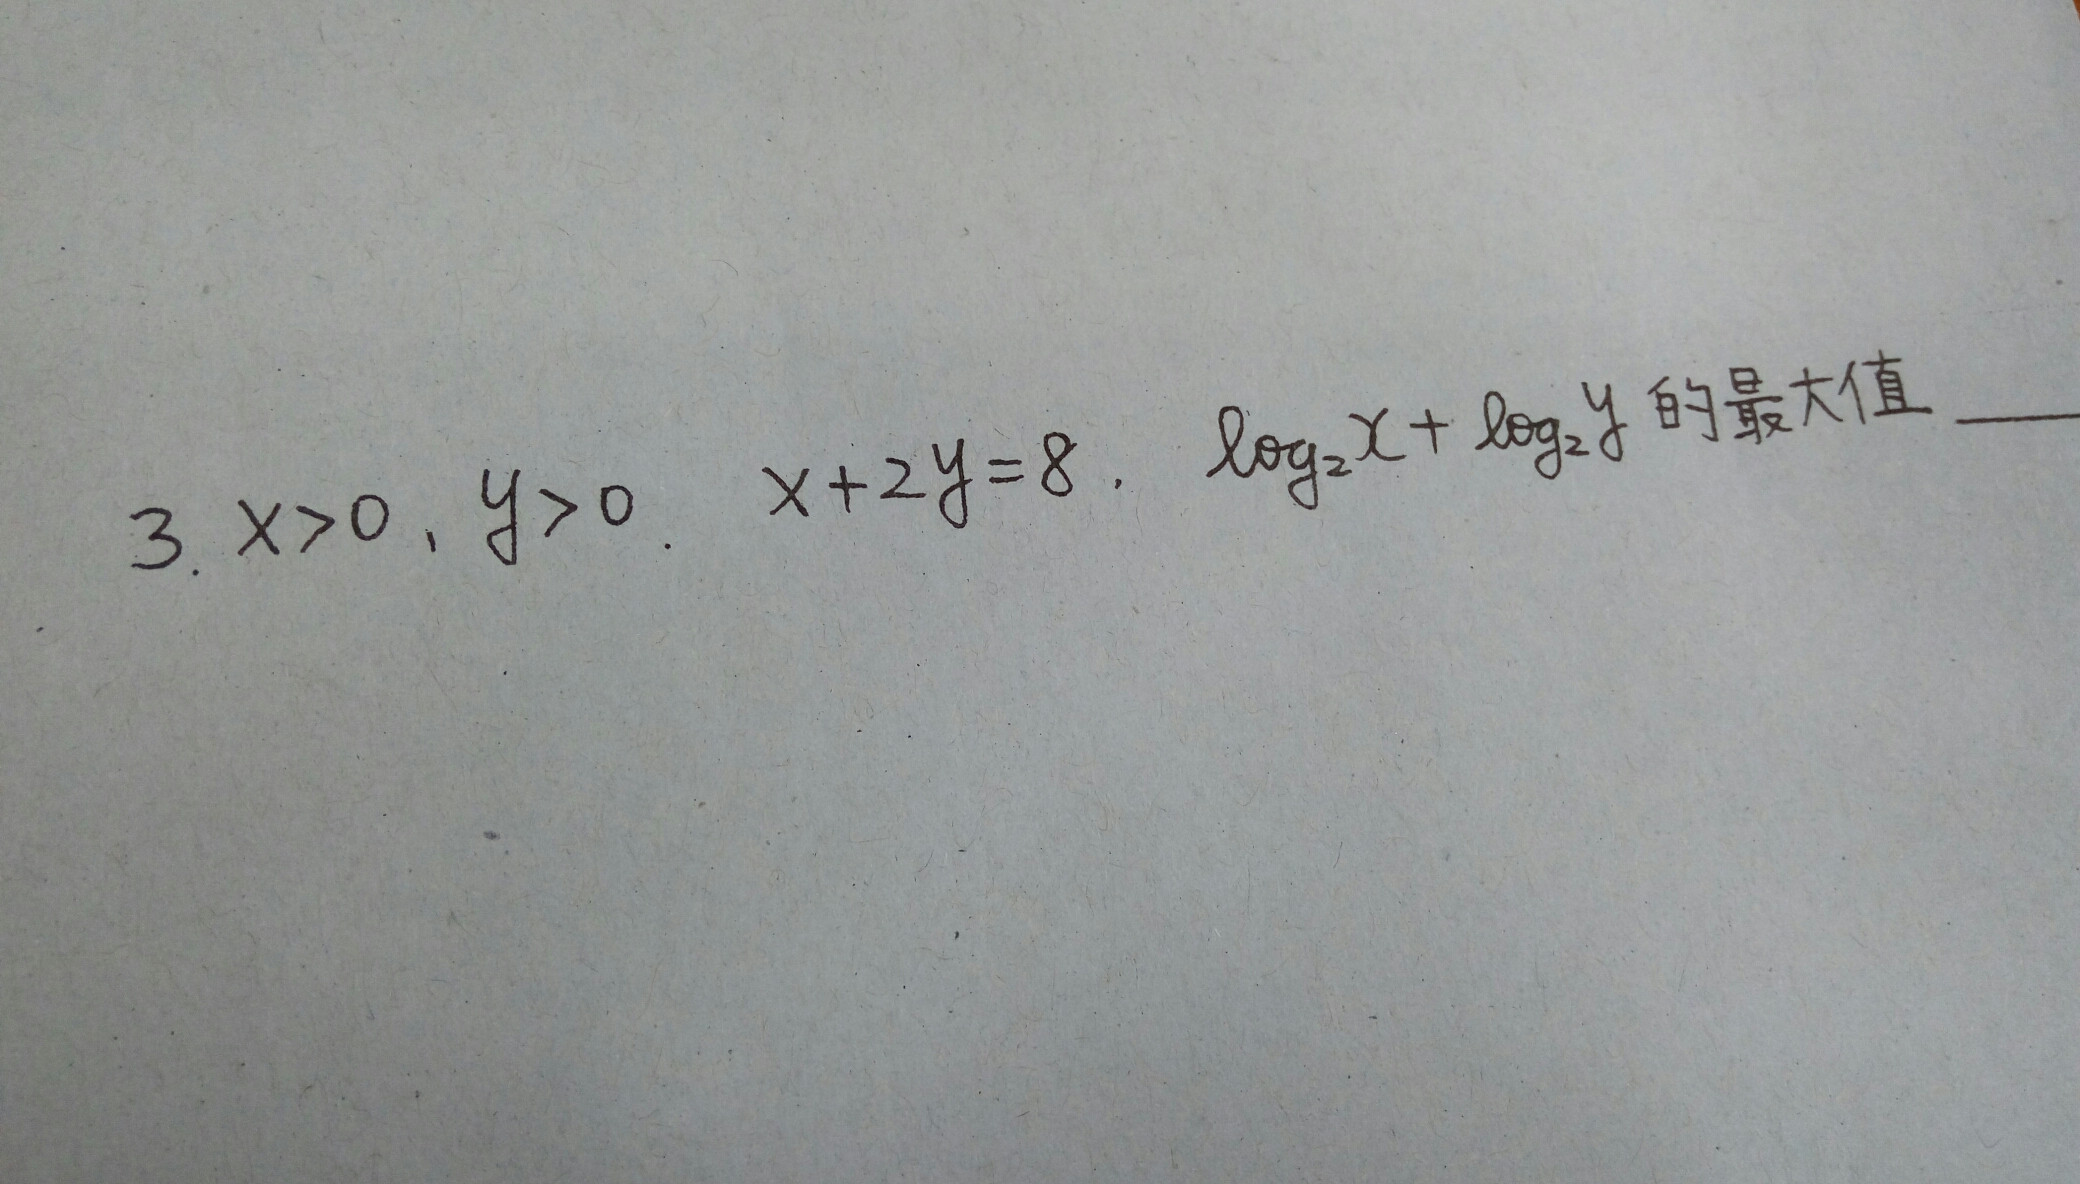 3. x>0, y>0. x+2y=8. log₂x+log₂y 的最大值 ____